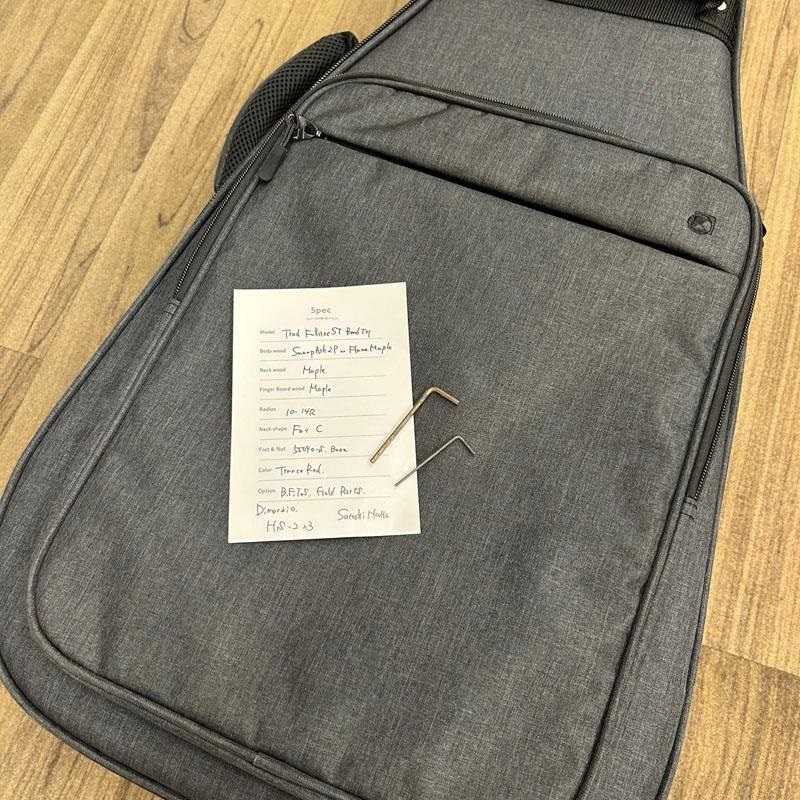 Spec
Model Trad Fullsize ST Bend Top
Body wood Swamp Ash 2P on Flame Maple
Neck wood Maple
Finger Board wood Maple
Radius 10-14R
Neck shape Fat C
Fret & Nut Bone
Color Trance Red.
Option B.F.T.S. Gold Parts.
Dimarzio.
HS-2 x3